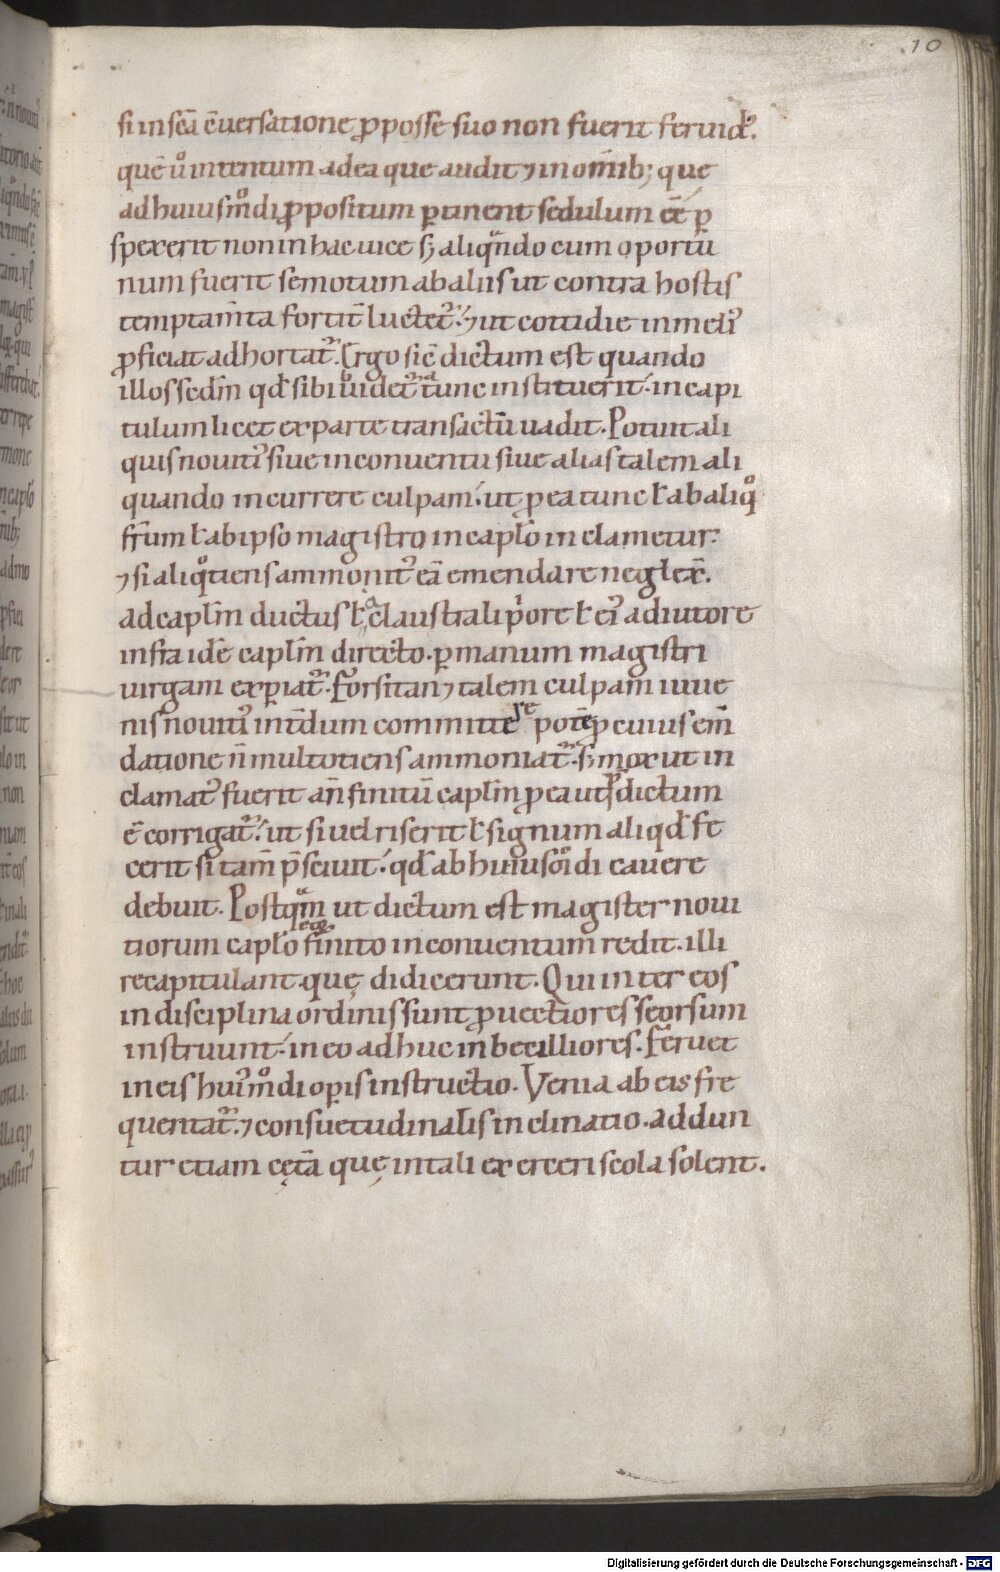 10
si in scā ꝯuersatione ꝓ posse suo non fuerit feruidꝰ.
quē ů intentum ad ea que audit ⁊ in om̄ib; que
ad huiusmͦdi ꝓpositum ꝑtinent sedulum eē̄ ꝑ
spexerit non in hac uice s; aliqͣndo cum oportu
num fuerit semotum ab aliis ut contra hostis
temptam̄ta fortit̄ luctet᷑. ⁊ ut cottidie in meliꝰ
ꝓficiat adhortat᷑. Ergo sic̄ dictum est quando
illos sedm̄ qd̄ sibi uidet᷑ tunc instituerit. in capi
tulum licet ex parte transactū uadit. Potuit ali
quis nouitiꝰ siue in conuentu siue alias talem ali
quando incurrere culpam. ut ꝓ ea tunc ł ab aliqͦ
fr̄m ł ab ipso magistro in capł̄o inclametur.
⁊ si aliqͦtiens ammonitꝰ eā emendare neglex̄.
ad capł̄m ductus ł a claustrali p̍ore ł eiꝰ adiutore
infra idē capł̄m directo. ꝑ manum magistri
uirgam exꝑiat᷑. Forsitan ⁊ talem culpam iuue
nis nouitiꝰ int̄dum committere potē ꝓ cuius em̄
datione n̄ multotiens ammoniat᷑. s; mox ut in
clamatꝰ fuerit an̄ finitū capł̄m ꝓ ea ut p̄dictum
ē corrigat᷑. ut si uel riserit ł signum aliqd̄ fe
cerit si tam̄ p̄sciuit. qd̄ ab huiusmͦdi cauere
debuit. Postqͣm ut dictum est magister noui
tiorum capł̄o finito in conuentum redit. illi
recapitulant. quę didicerunt. Qui inter eos
in disciplina ordinis sunt ꝓuectiores seorsum
instruunt. in eo adhuc inbecilliores. Feruet
in eis huiꝰmͦdi oꝑis instructio. Venia ab eis fre
quentat᷑. ⁊ consuetudinalis inclinatio. addun
tur etiam cętā quę in tali exerceri scola solent.
Digitalisierung gefördert durch die Deutsche Forschungsgemeinschaft - DFG